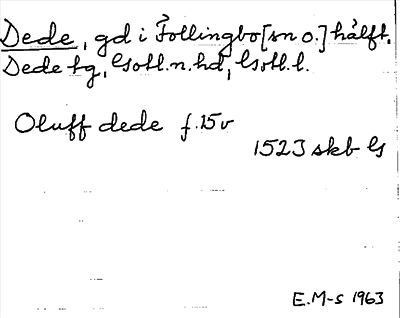 Dede, gd i Follingbo [sn o.] hälft.
Dede tg, Gotl.n.hd, Gotl.l.
Oluff dede f.15v
1523 skb G
E.M-s 1963